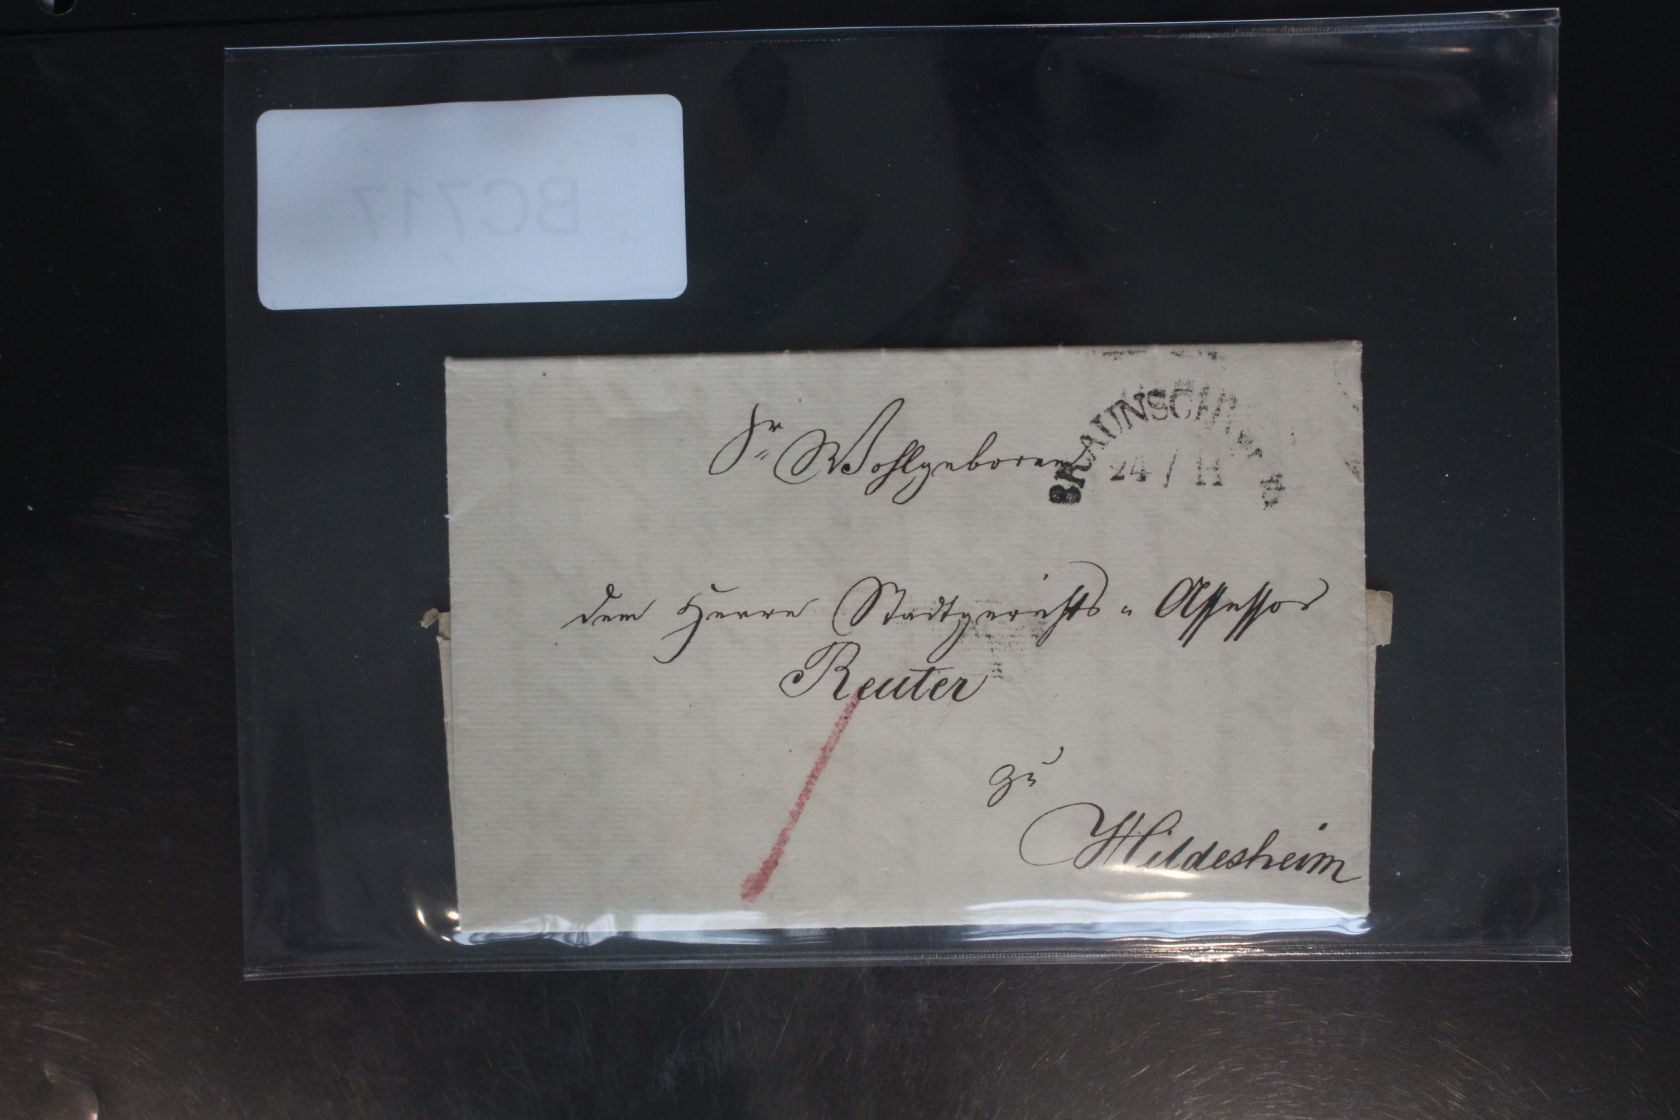 BC717
Sr Wohlgeboren
BRAUNSCHWEIG
24 / 11
dem Herrn Stadtgerichts= Assessor
Reuter
zu
Hildesheim